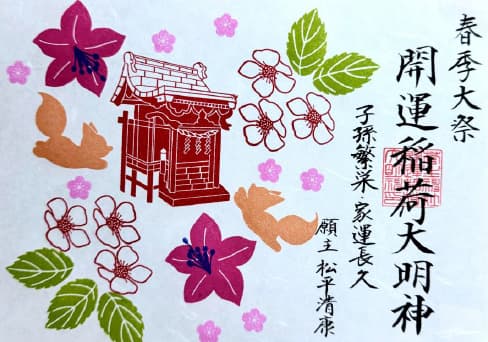 春季大祭
開運稲荷大明神
子孫繁栄・家運長久
願主 松平清康